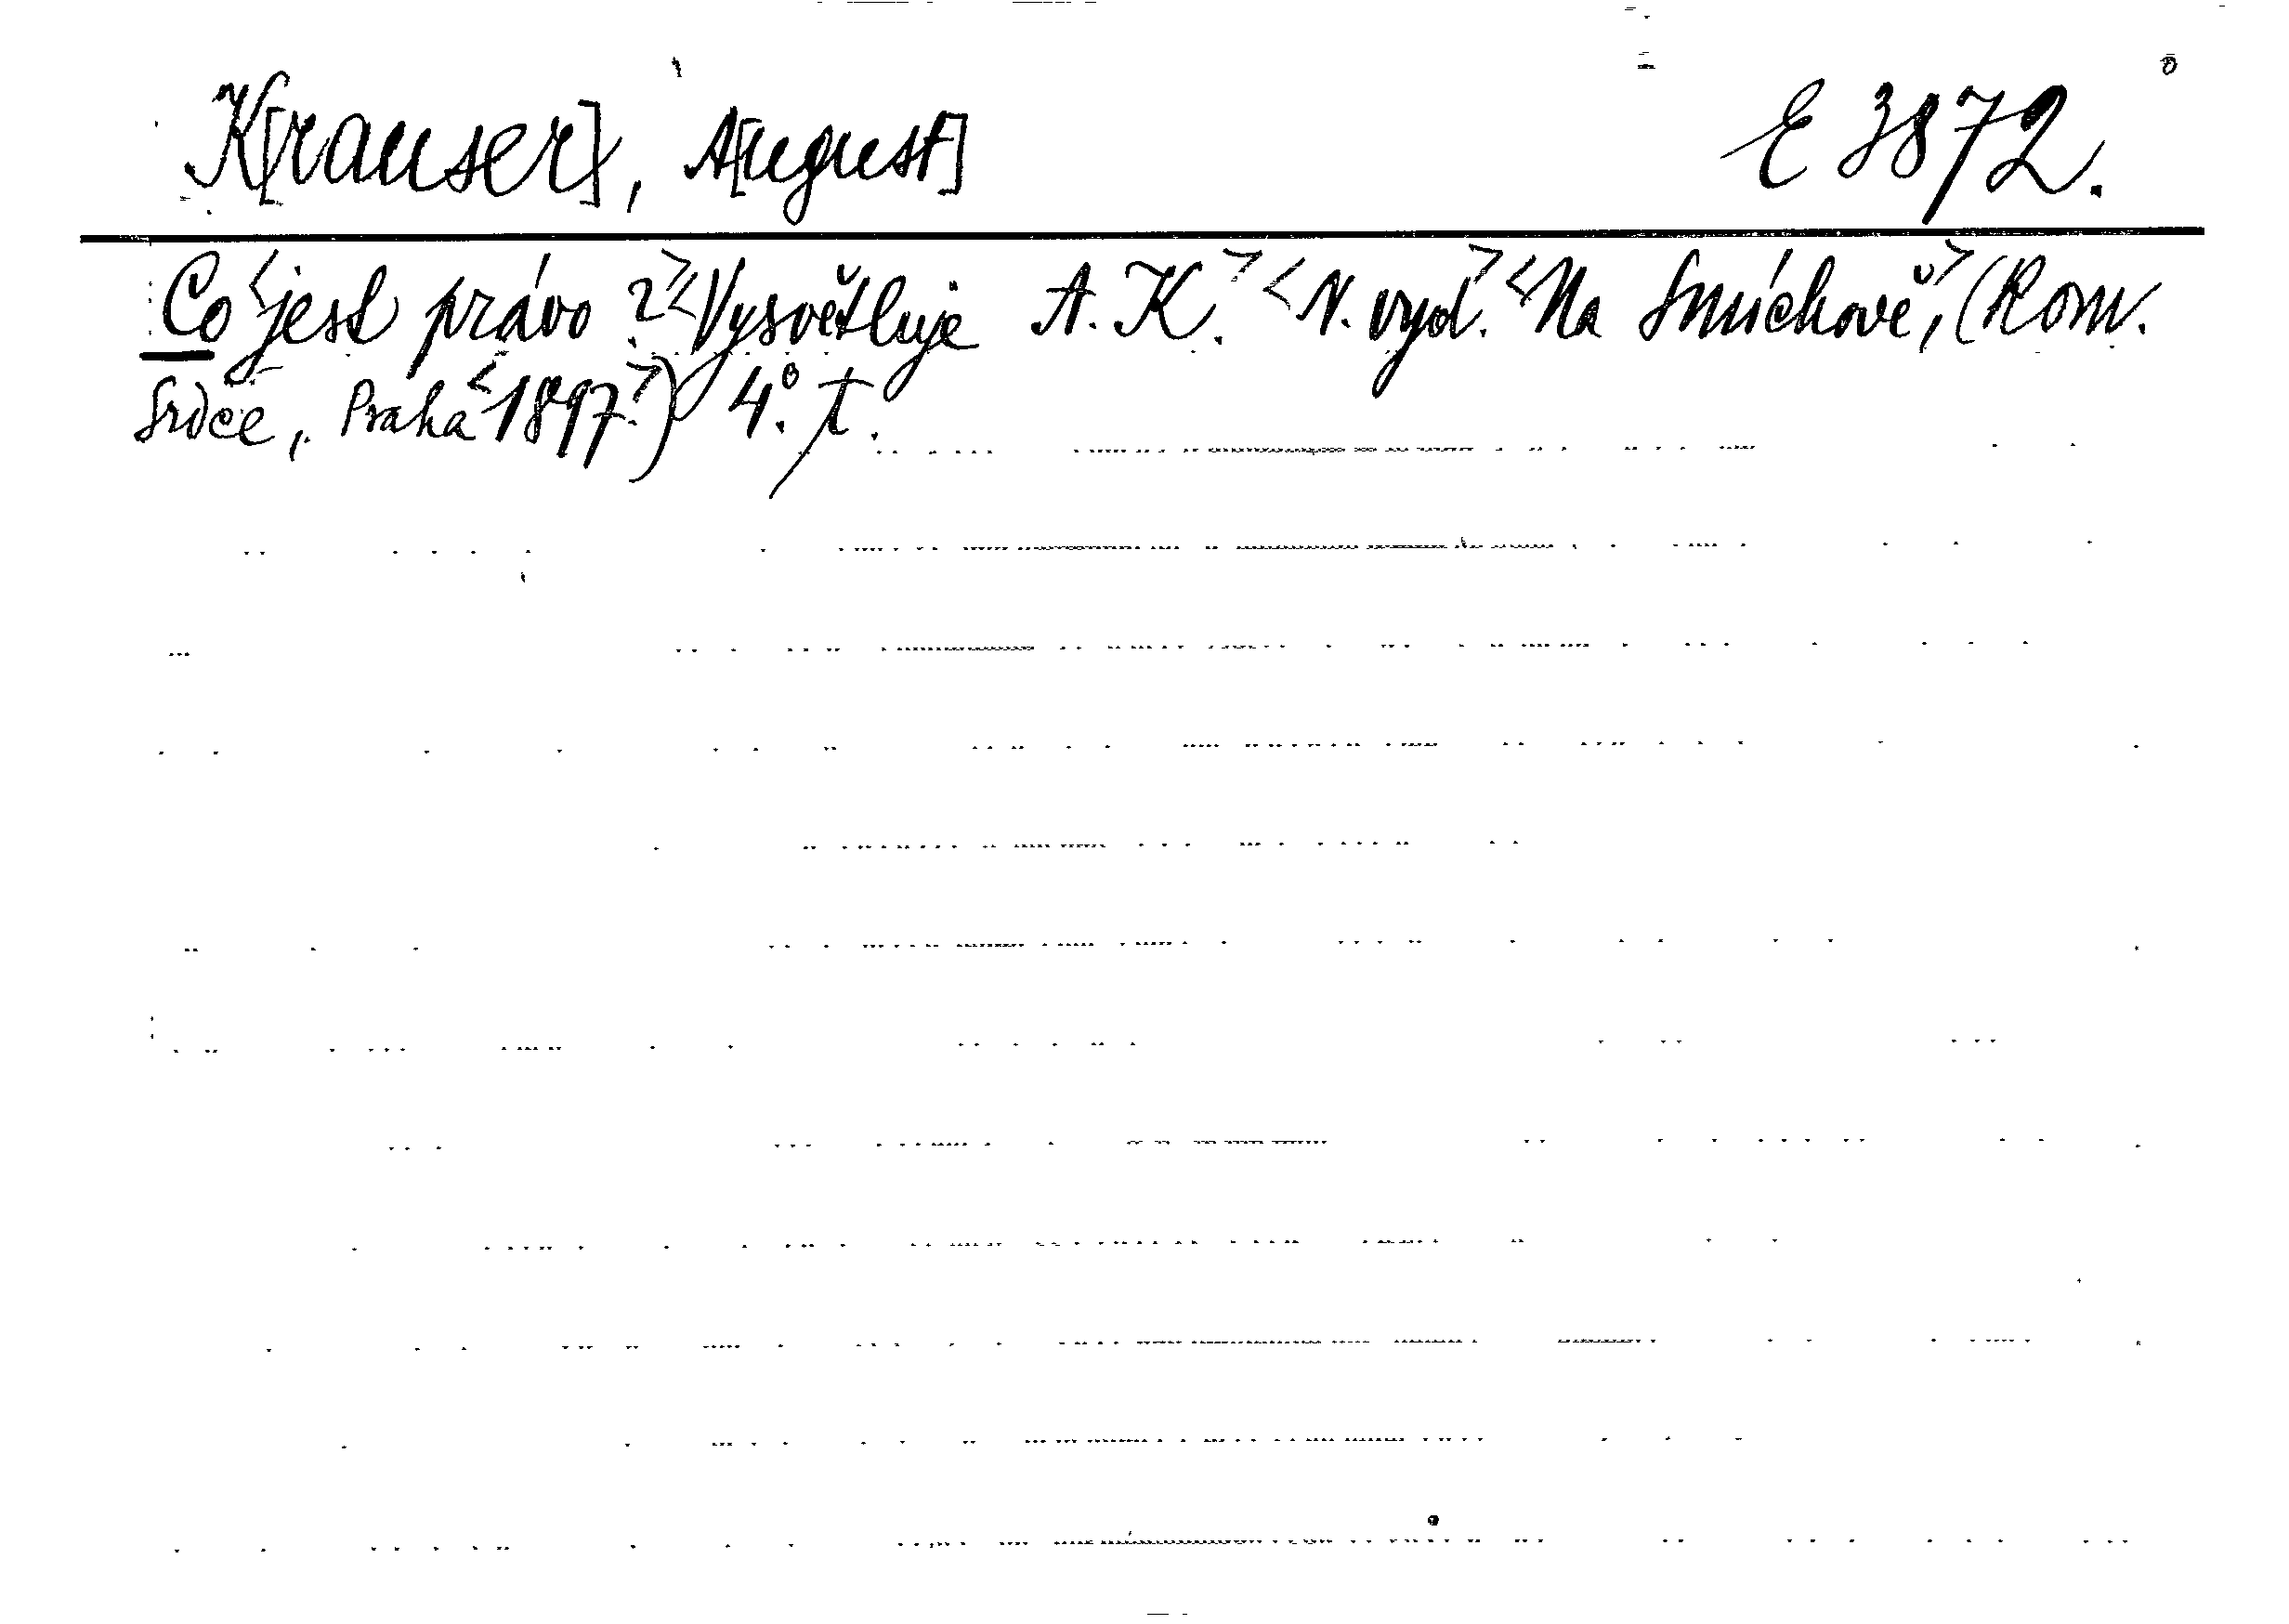 K[rauser], A[ugust] E 3872.
Co <jest právo?> <Vysvětluje A. K.> <N. vyd.> <Na Smíchově,> (Rom.
Srdce, Praha <1897.>) 4°. t.